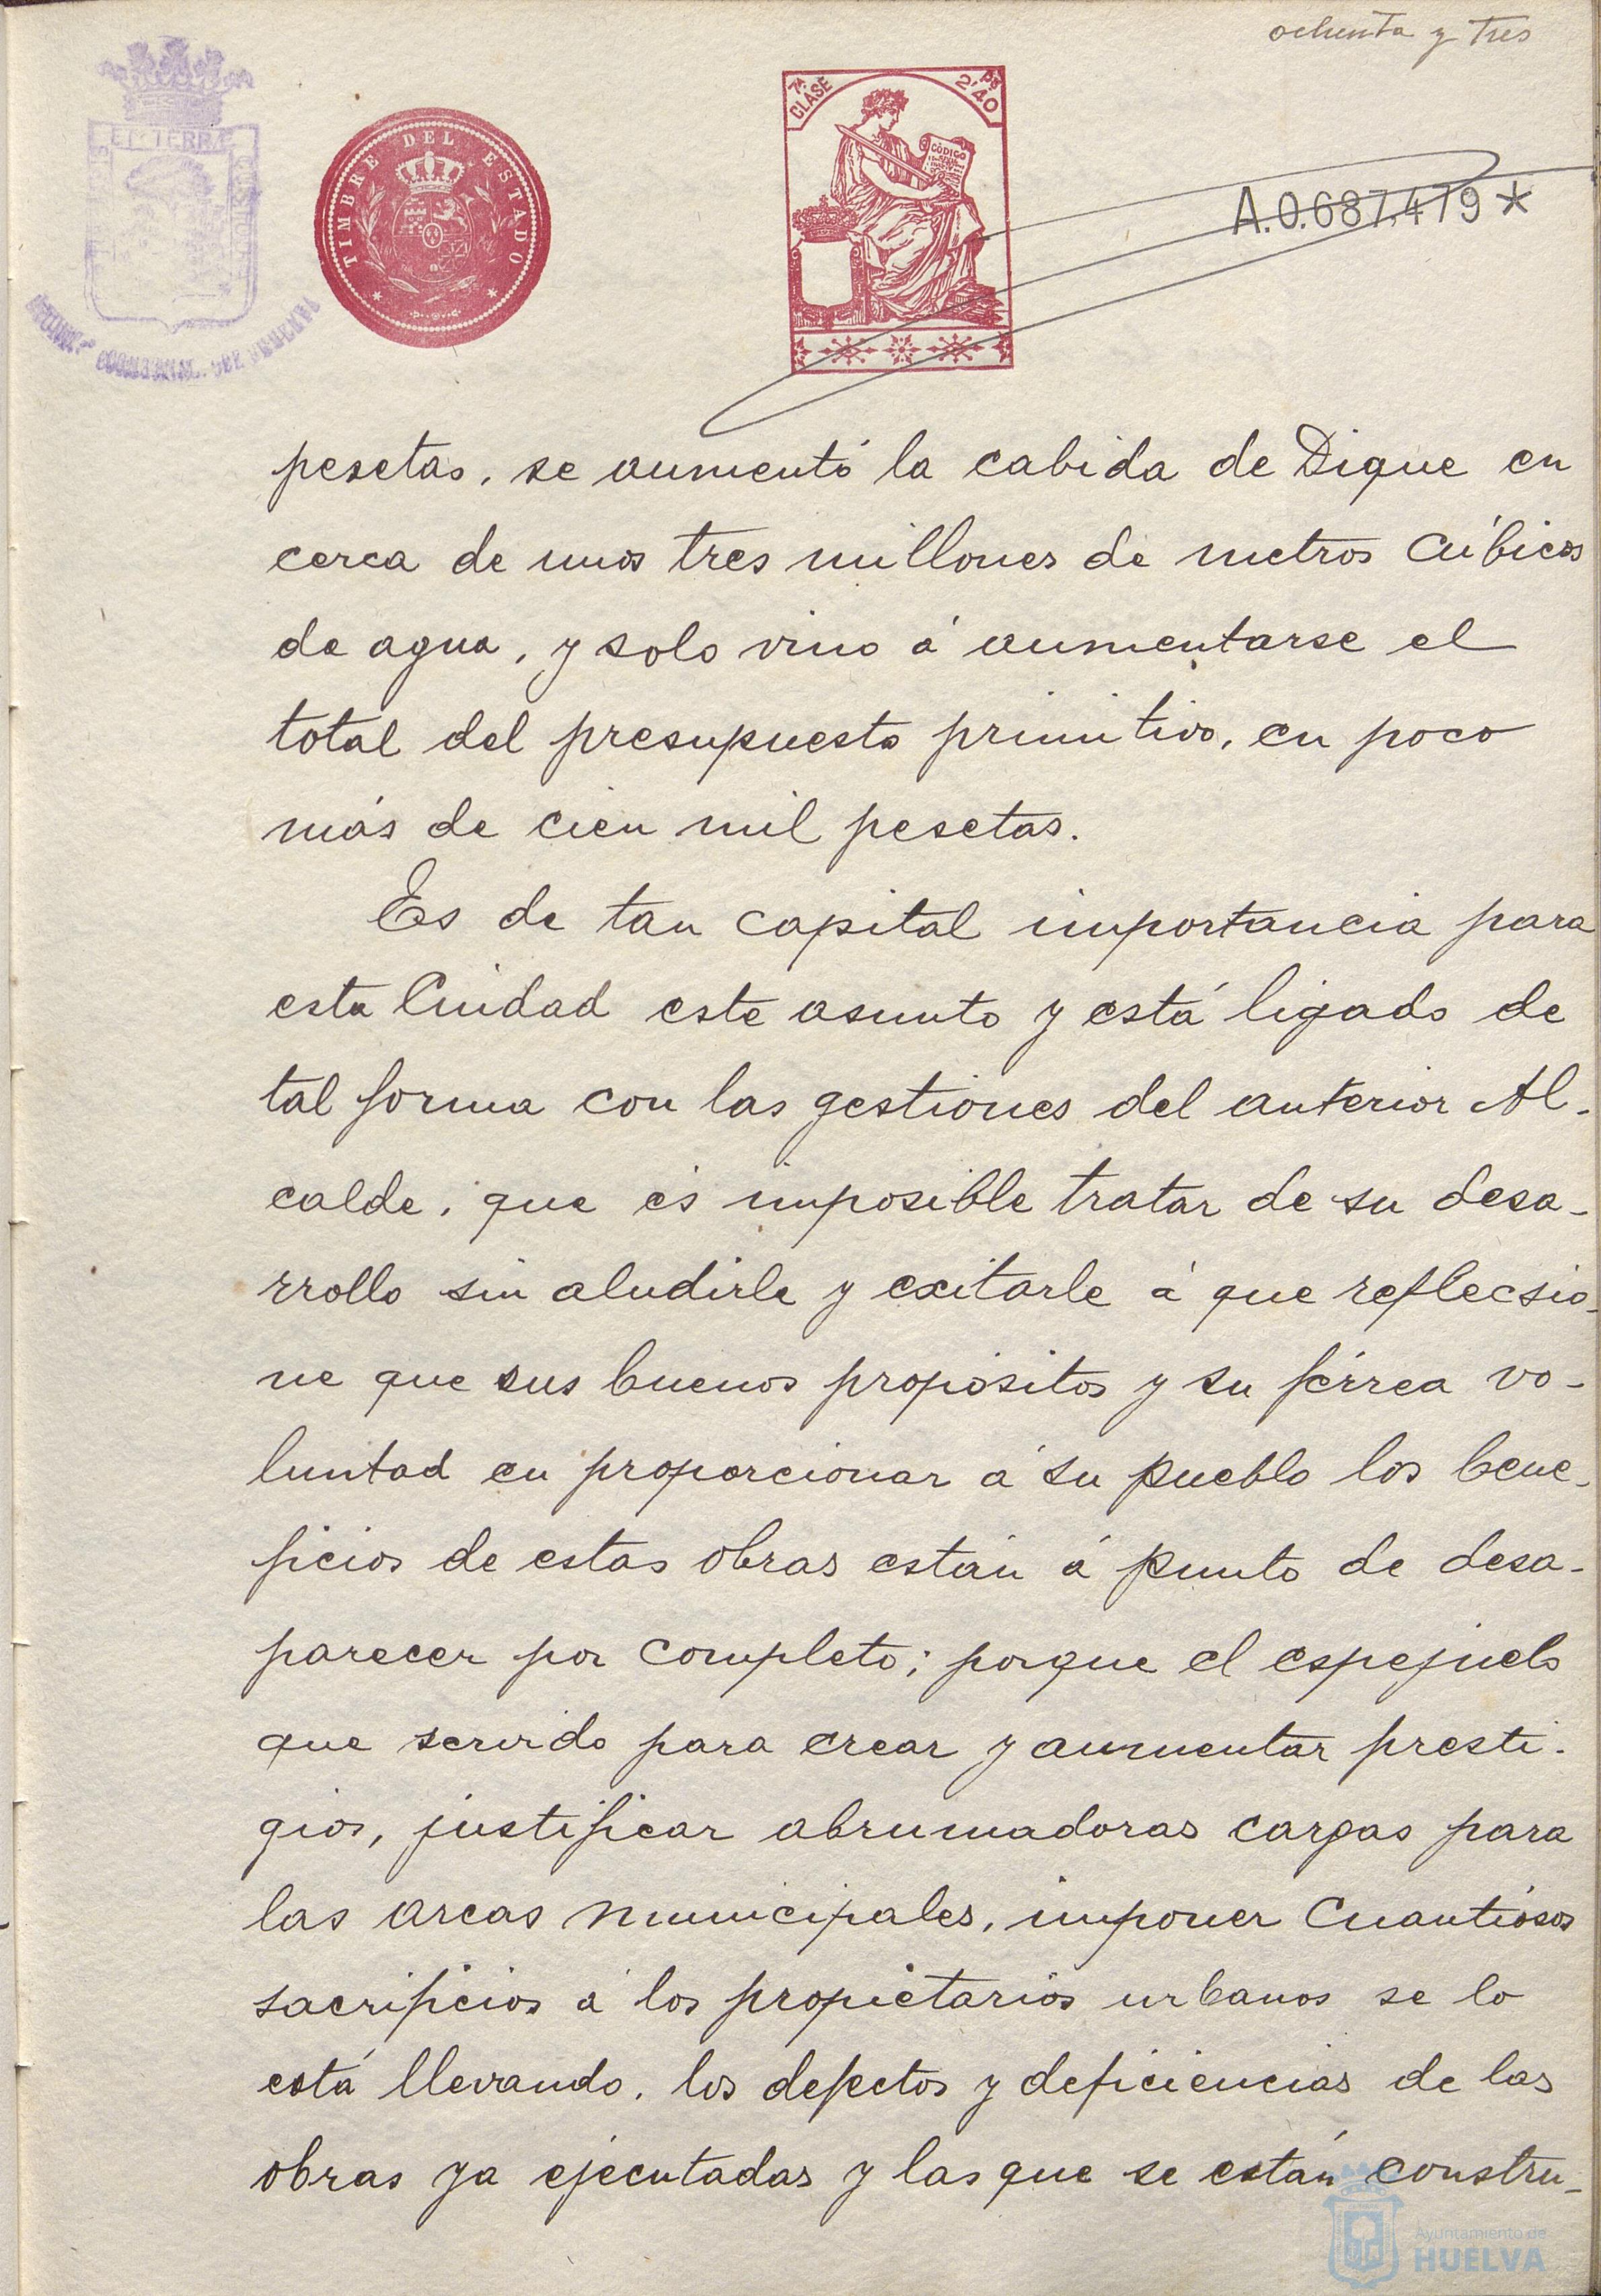 ochenta y tres
TIMBRE DEL ESTADO
7ª CLASE
2'40 Pts
CÓDIGO
A.0.687.479*
pesetas, se aumentó la cabida de Dique en
cerca de unos tres millones de metros cúbicos
de agua, y solo vino á aumentarse el
total del presupuesto primitivo, en poco
más de cien mil pesetas.
Es de tan capital importancia para
esta Ciudad este asunto y está ligado de
tal forma con las gestiones del anterior Al-
calde, que és imposible tratar de su desa-
rrollo sin aludirle y exitarle á que reflecsio-
ne que sus buenos propósitos y su férrea vo-
luntad en proporcionar á su pueblo los bene-
ficios de estas obras están á punto de desa-
parecer por completo; porque el espejuelo
que servido para crear y aumentar presti-
gios, justificar abrumadoras cargas para
las arcas municipales, imponer cuantiosos
sacrificios á los propietarios urbanos se lo
está llevando, los defectos y deficiencias de las
obras ya ejecutadas y las que se están constru-
Ayuntamiento de
HUELVA